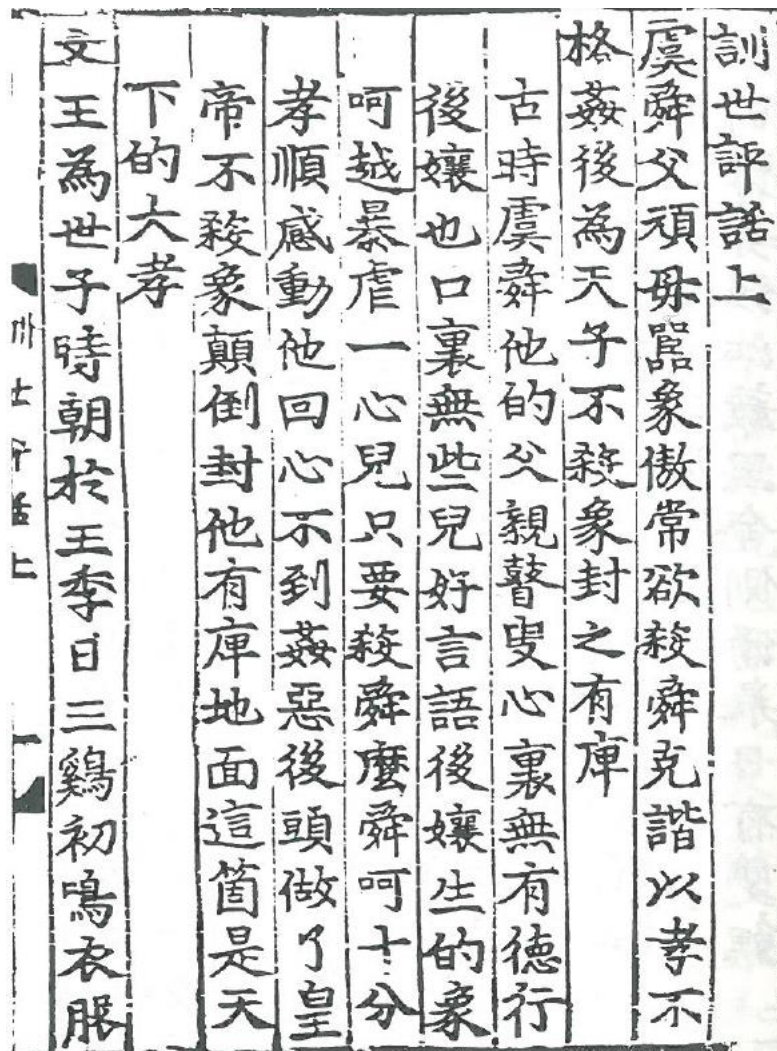 訓世評話上
虞舜父頑母嚚象傲常欲殺舜克諧以孝不
格姦後為天子不殺象封之有庳
古時虞舜他的父親瞽叟心裏無有德行
後孃也口裏無些兒好言語後孃生的象
呵越暴虐一心兒只要殺舜麼舜呵十分
孝順感動他回心不到姦惡後頭做了皇
帝不殺象顛倒封他有庳地面這箇是天
下的大孝
文王為世子時朝於王季日三鷄初鳴衣服